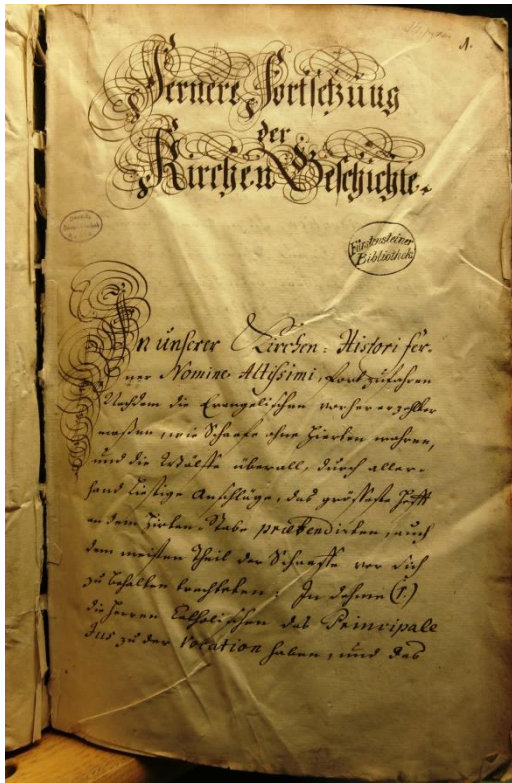 1.
Fernere Fortsetzung
der
Kirchen Geschichte.
Fürstensteiner
Bibliothek
In unserer Kirchen-Histori fer-
ner Nomine Altissimi, fortzufahren
Nachdem die Evangelischen vorher erzehlter
maßen, wie Schaafe ohne Hierten wahren,
und die Wölffe überall, durch aller-
hand listige Anschläge, das größeste Hefft
an dem Hirten-Stabe prætendirten, auch
dem meisten Theil der Schaaffe vor sich
zu behalten trachteten: In dehme (1.)
die Herren Catholischen das Principale
Jus zu der Vocation haben, und das